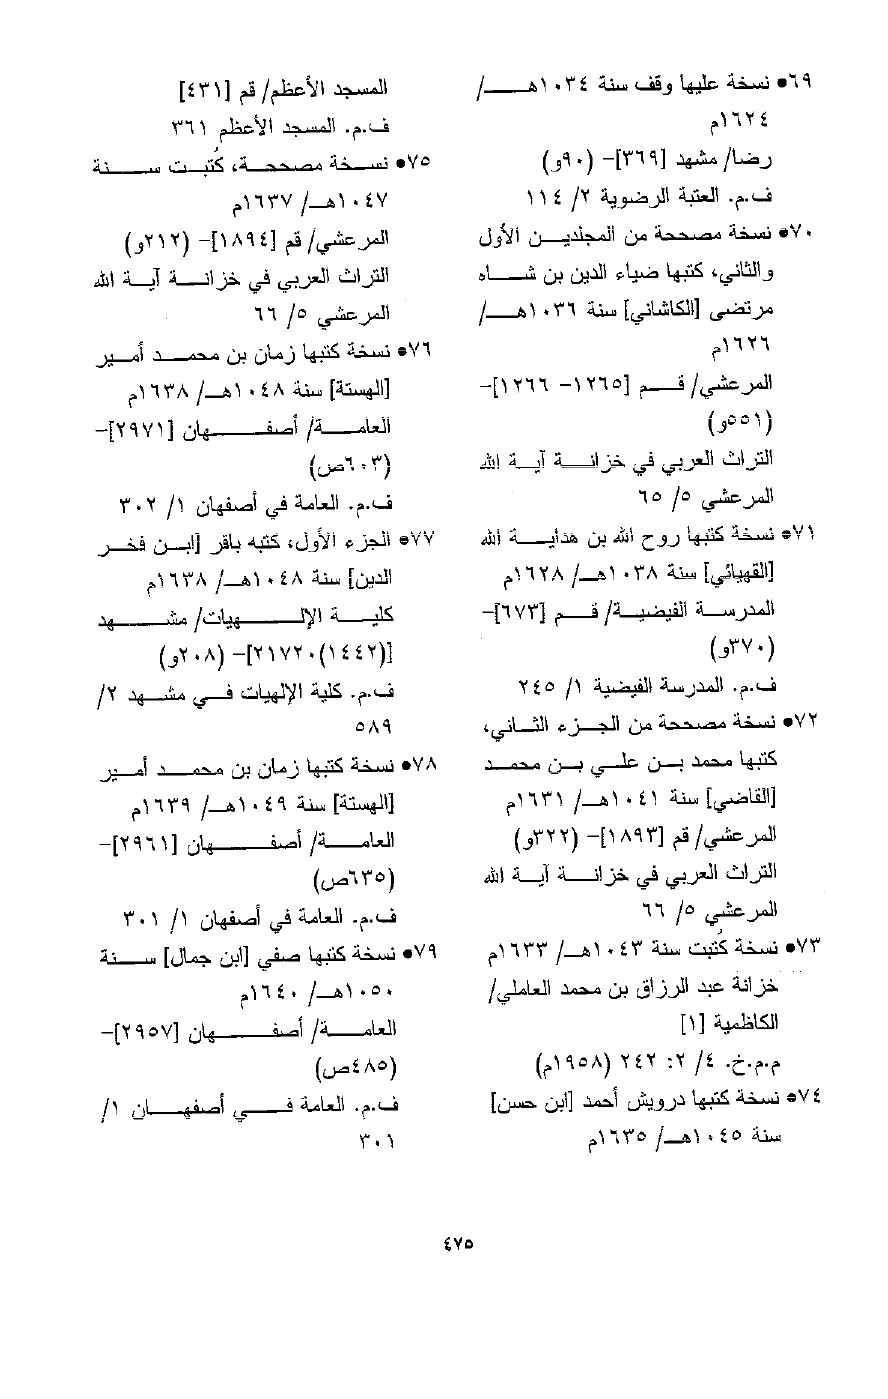 ٦٩• نسخة عليها وقف سنة ١٠٣٤هـ/
١٦٢٤م
رضا/ مشهد [٣٦٩]- (٩٠و)
ف.م. العتبة الرضوية ٢/ ١١٤
٧٠• نسخة مصححة من المجلدين الأول
والثاني، كتبها ضياء الدين بن شاه
مرتضى [الكاشاني] سنة ١٠٣٦هـ/
١٦٢٦م
المرعشي/ قم [١٢٦٥- ١٢٦٦]-
(٥٥١و)
التراث العربي في خزانة آية الله
المرعشي ٥/ ٦٥
٧١• نسخة كتبها روح الله بن هداية الله
[القهپائي] سنة ١٠٣٨هـ/ ١٦٢٨م
المدرسة الفيضية/ قم [٦٧٣]-
(٣٧٠و)
ف.م. المدرسة الفيضية ١/ ٢٤٥
٧٢• نسخة مصححة من الجزء الثاني،
كتبها محمد بن علي بن محمد
[القاضي] سنة ١٠٤١هـ/ ١٦٣١م
المرعشي/ قم [١٨٩٣]- (٣٢٢و)
التراث العربي في خزانة آية الله
المرعشي ٥/ ٦٦
٧٣• نسخة كُتبت سنة ١٠٤٣هـ/ ١٦٣٣م
خزانة عبد الرزاق بن محمد العاملي/
الكاظمية [١]
م.م.خ. ٤/ ٢: ٢٤٢ (١٩٥٨م)
٧٤• نسخة كتبها درويش أحمد [ابن حسن]
سنة ١٠٤٥هـ/ ١٦٣٥م
المسجد الأعظم/ قم [٤٣١]
ف.م. المسجد الأعظم ٣٦١
٧٥• نسخة مصححة، كُتبت سنة
١٠٤٧هـ/ ١٦٣٧م
المرعشي/ قم [١٨٩٤]- (٢١٢و)
التراث العربي في خزانة آية الله
المرعشي ٥/ ٦٦
٧٦• نسخة كتبها زمان بن محمد أمير
[الهستة] سنة ١٠٤٨هـ/ ١٦٣٨م
العامة/ أصفهان [٢٩٧١]-
(٦٠٣ص)
ف.م. العامة في أصفهان ١/ ٣٠٢
٧٧• الجزء الأول، كتبه باقر [ابن فخر
الدين] سنة ١٠٤٨هـ/ ١٦٣٨م
كلية الإلهيات/ مشهد
[(١٤٤٢)٢١٧٢٠]- (٢٠٨و)
ف.م. كلية الإلهيات في مشهد ٢/
٥٨٩
٧٨• نسخة كتبها زمان بن محمد أمير
[الهستة] سنة ١٠٤٩هـ/ ١٦٣٩م
العامة/ أصفهان [٢٩٦١]-
(٦٣٥ص)
ف.م. العامة في أصفهان ١/ ٣٠١
٧٩• نسخة كتبها صفي [ابن جمال] سنة
١٠٥٠هـ/ ١٦٤٠م
العامة/ أصفهان [٢٩٥٧]-
(٤٨٥ص)
ف.م. العامة في أصفهان ١/
٣٠١
٤٧٥